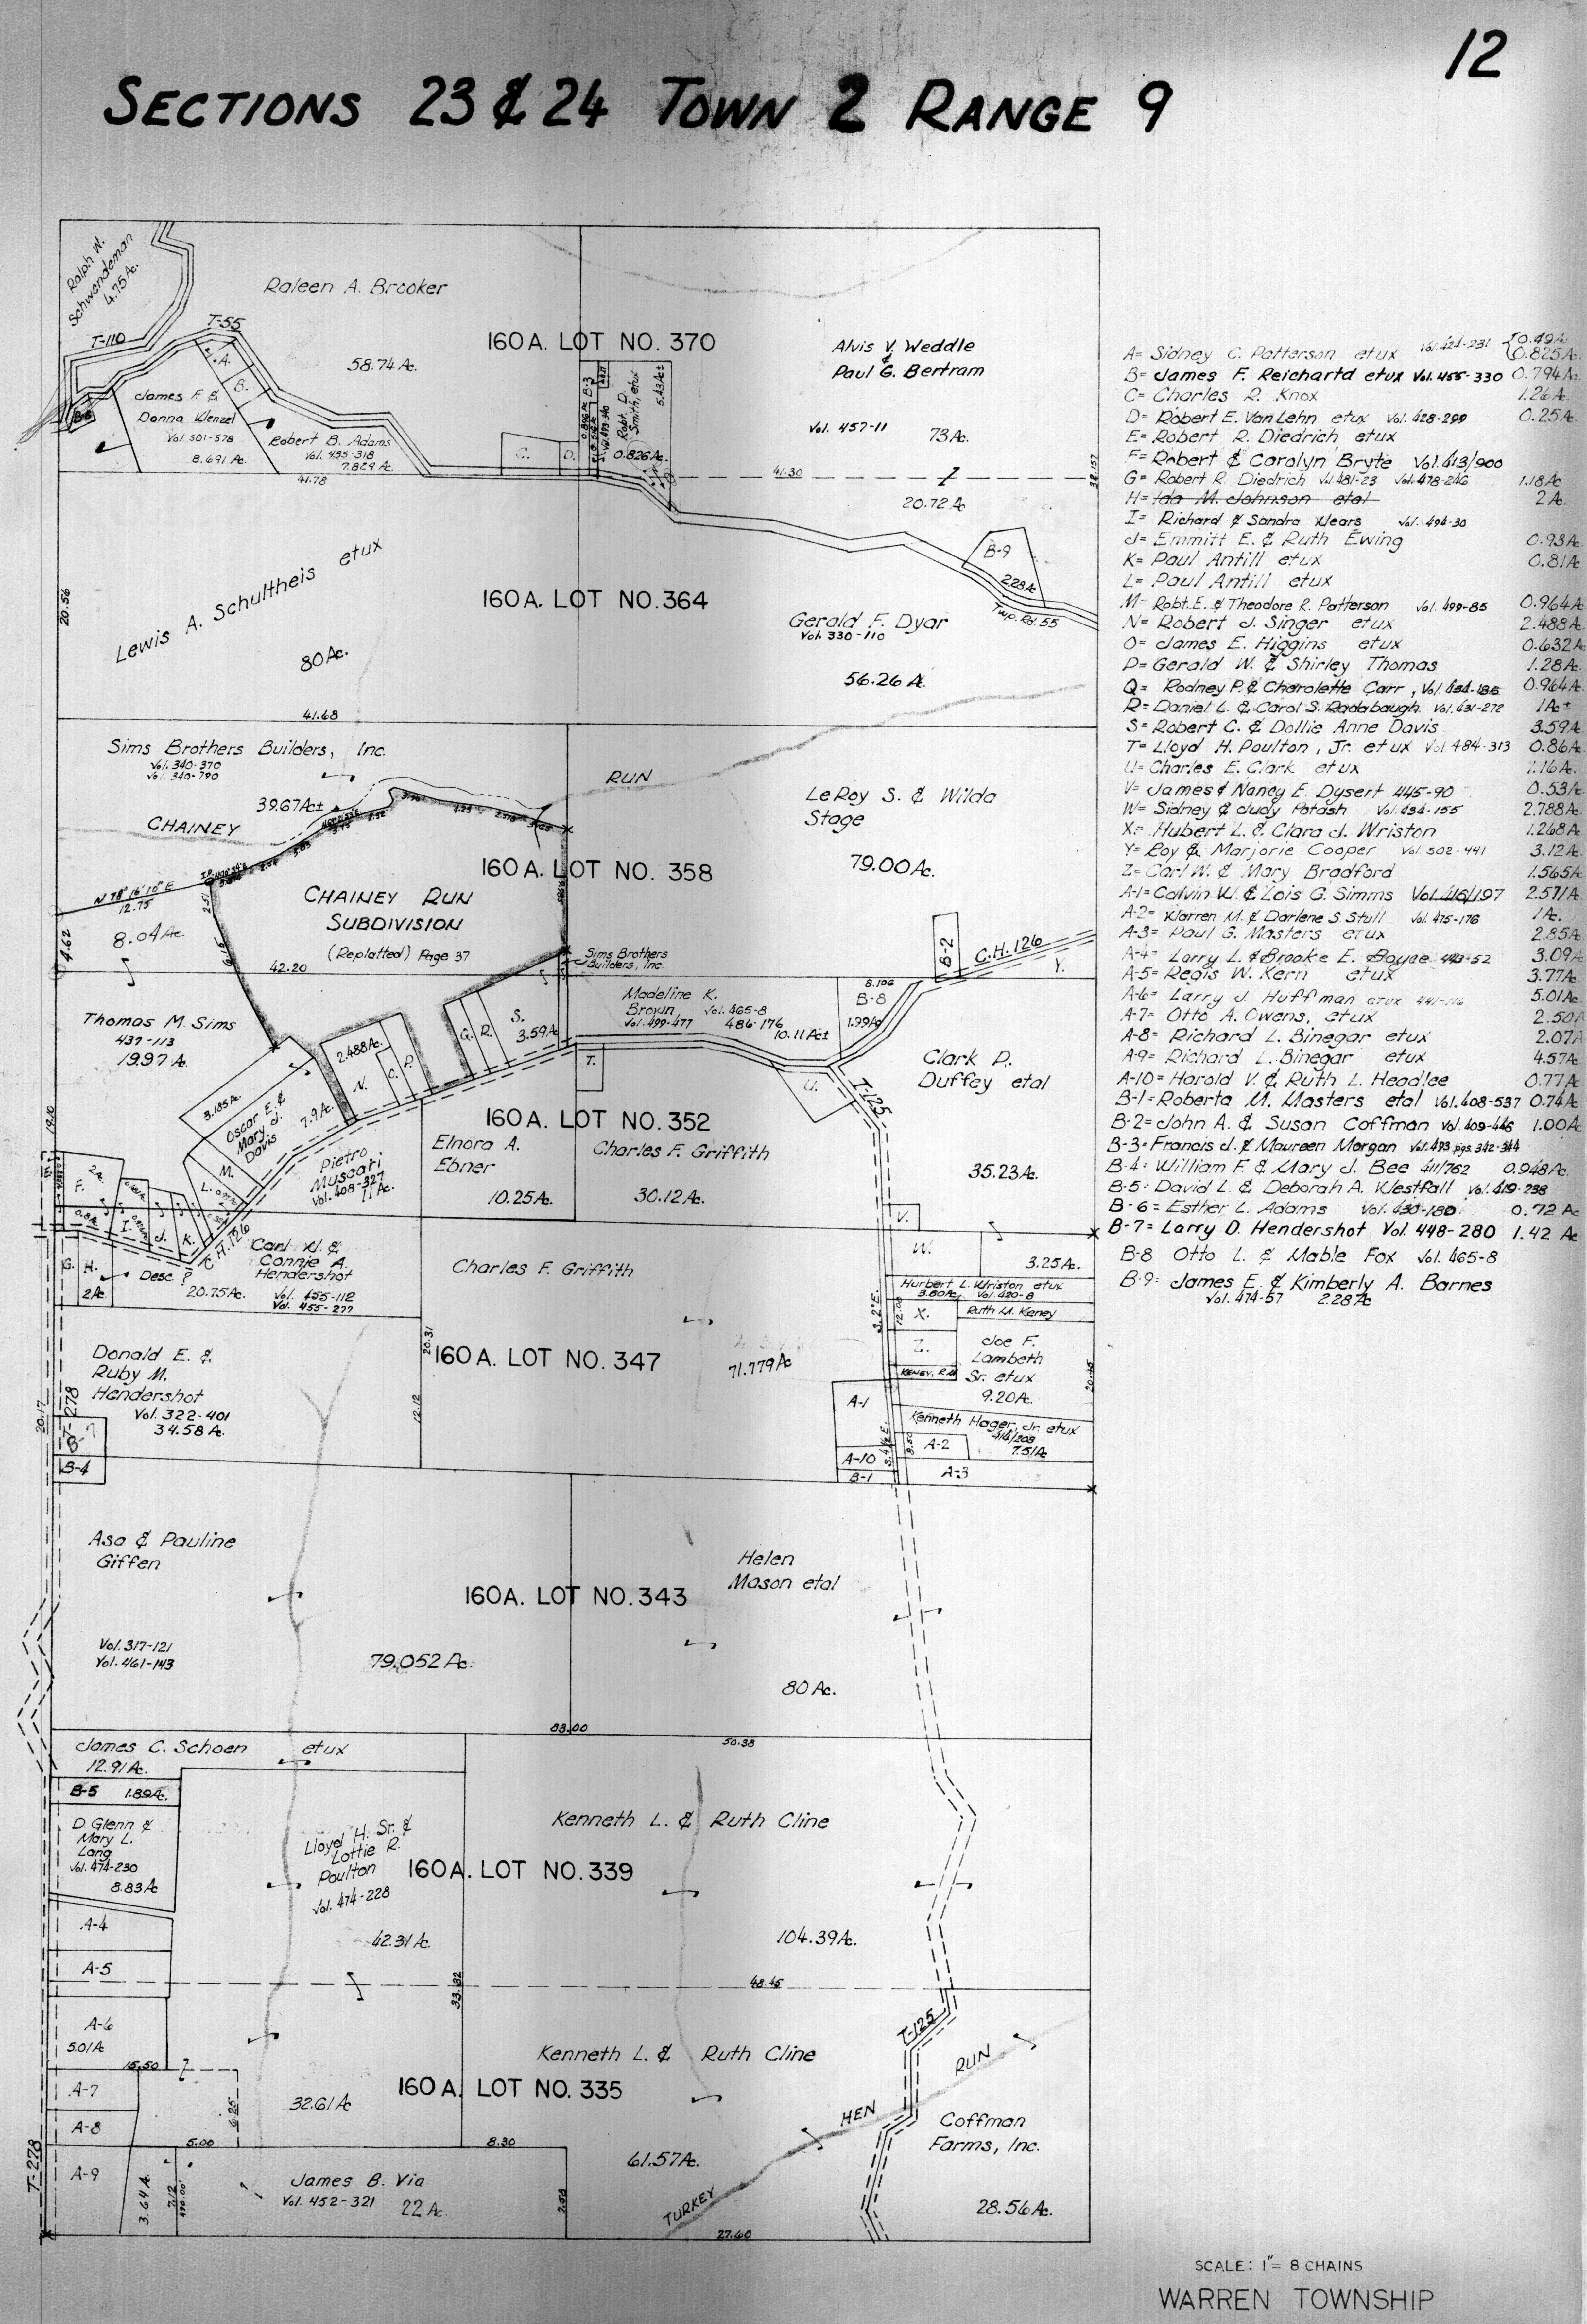 12
SECTIONS 23 & 24 TOWN 2 RANGE 9
Ralph W.
Schwendeman
4.75 A.
T-110
T-55
Raleen A. Brooker
58.74 Ac.
160 A. LOT NO. 370
Alvis V. Weddle
&
Paul G. Bertram
Vol. 457-11
73 Ac.
A.
B.
B-6
James F. &
Donna Wenzel
Vol 501-578
8.691 Ac.
Robert B. Adams
Vol. 435-318
7.829 Ac.
C.
D.
B-3
Robt. D.
Smith, etux
0.826 Ac.
5.43 Ac±
41.78
41.30
20.72 Ac
B-9
2.28 Ac
Twp. Rd. 55
Lewis A. Schultheis etux
80 Ac.
20.56
160 A. LOT NO. 364
Gerald F. Dyar
Vol. 330-110
56.26 A.
41.68
Sims Brothers Builders, Inc.
Vol. 340-370
Vol. 340-790
39.67 Ac±
CHAINEY
RUN
LeRoy S. & Wilda
Stage
79.00 Ac.
160 A. LOT NO. 358
N 78° 16' 10" E
12.75
4.62
8.04 Ac
CHAINEY RUN
SUBDIVISION
(Replatted) Page 37
42.20
Sims Brothers
Builders, Inc.
B-2
C.H. 126
Y.
Thomas M. Sims
437-113
19.97 A.
Madeline K.
Brown Vol. 465-8
Vol. 499-477 486-176
10.11 Ac±
8.106
B-8
1.99 Ac
G.
R.
S.
3.59 Ac
2.488 Ac.
N.
O.
P.
T.
U.
T-125
Clark D.
Duffey etal
35.23 Ac.
3.185 Ac.
Oscar E. &
Mary J.
Davis
7.9 Ac.
160 A. LOT NO. 352
Pietro
Muscari
Vol. 408-327
11 Ac.
Elnora A.
Ebner
10.25 Ac.
Charles F. Griffith
30.12 Ac.
19.10
2 A.
F.
I.
J.
K.
L.
M.
C.H. 126
V.
G.
H.
2 Ac
Desc. ?
20.75 Ac.
Carl W. &
Connie A.
Hendershot
Vol. 455-112
Vol. 455-277
Charles F. Griffith
W.
3.25 Ac.
Hurbert L. Wriston etux
3.80 Ac. Vol. 420-8
X.
Ruth M. Keney
Z.
KENEY, R.M.
Joe F.
Lambeth
Sr. etux
9.20 Ac.
Donald E. &
Ruby M.
Hendershot
Vol. 322-401
34.58 A.
T-278
20.17
20.31
12.12
160 A. LOT NO. 347
71.779 Ac
A-1
Kenneth Hager, Jr. etux
414/208
7.51 Ac
A-2
A-10
B-1
A-3
B-7
B-4
Asa & Pauline
Giffen
Vol. 317-121
Vol. 461-143
79.052 Ac.
160 A. LOT NO. 343
Helen
Mason etal
80 Ac.
83.00
50.38
James C. Schoen etux
12.91 Ac.
B-5 1.89 Ac.
D. Glenn &
Mary L.
Lang
Vol. 474-230
8.83 Ac
Lloyd H. Sr. &
Lottie R.
Poulton
Vol. 474-228
42.31 Ac.
Kenneth L. & Ruth Cline
160 A. LOT NO. 339
104.39 Ac.
A-4
A-5
33.32
48.45
A-6
5.01 A
15.50
?
Kenneth L. & Ruth Cline
T-125
RUN
A-7
A-8
6.25
32.61 Ac
160 A. LOT NO. 335
HEN
Coffman
Farms, Inc.
5.00
8.30
61.57 Ac.
T-278
A-9
3.64 A.
7.12
James B. Via
Vol. 452-321 22 Ac.
TURKEY
28.56 Ac.
27.60
A= Sidney C. Patterson etux Vol. 421-231 0.49 A. 0.825 A.
B= James F. Reichartd etux Vol. 455-330 0.794 Ac.
C= Charles R. Knox 1.26 A.
D= Robert E. VanLehn etux Vol. 428-299 0.25 A.
E= Robert R. Diedrich etux
F= Robert & Carolyn Bryte Vol. 413/900
G= Robert R. Diedrich Vol. 481-23 Vol. 478-246 1.18 Ac
H= Ida M. Johnson etal 2 Ac.
I= Richard & Sandra Wears Vol. 494-30
J= Emmitt E. & Ruth Ewing 0.93 A.
K= Paul Antill etux 0.81 A
L= Paul Antill etux
M= Robt. E. & Theodore R. Patterson Vol. 499-85 0.964 A.
N= Robert J. Singer etux 2.488 A.
O= James E. Higgins etux 0.632 A
P= Gerald W. & Shirley Thomas 1.28 A.
Q= Rodney P. & Charolette Carr, Vol. 434-185 0.964 A.
R= Daniel L. & Carol S. Radabaugh Vol. 431-272 1 Ac±
S= Robert C. & Dollie Anne Davis 3.59 A.
T= Lloyd H. Poulton, Jr. etux Vol 484-313 0.86 A.
U= Charles E. Clark etux 1.16 A.
V= James & Nancy E. Dysert 445-90 0.53 A.
W= Sidney & Judy Potash Vol. 434-155 2.788 A.
X= Hubert L. & Clara J. Wriston 1.268 A.
Y= Roy & Marjorie Cooper Vol. 502-441 3.12 A.
Z= Carl W. & Mary Bradford 1.565 A.
A-1= Calvin W. & Lois G. Simms Vol. 416/197 2.571 A.
A-2= Warren M. & Darlene S. Stull Vol. 475-176 1 Ac.
A-3= Paul G. Masters etux 2.85 A.
A-4= Larry L. & Brooke E. Boyce 443-52 3.09 A.
A-5= Regis W. Kern etux 3.77 A.
A-6= Larry J. Huffman etux 441-116 5.01 A.
A-7= Otto A. Owens, etux 2.50 A
A-8= Richard L. Binegar etux 2.07 A
A-9= Richard L. Binegar etux 4.57 A.
A-10= Harold V. & Ruth L. Headlee 0.77 A.
B-1= Roberta M. Masters etal Vol. 408-537 0.74 A.
B-2= John A. & Susan Coffman Vol. 409-446 1.00 A.
B-3= Francis J. & Maureen Morgan Vol. 493 pgs 342-344
B-4= William F. & Mary J. Bee 411/762 0.948 Ac.
B-5= David L. & Deborah A. Westfall Vol. 419-238
B-6= Esther L. Adams Vol. 430-180 0.72 Ac
B-7= Larry D. Hendershot Vol. 448-280 1.42 Ac
B-8 Otto L. & Mable Fox Vol. 465-8
B-9= James E. & Kimberly A. Barnes
Vol. 474-57 2.28 Ac
SCALE: 1" = 8 CHAINS
WARREN TOWNSHIP